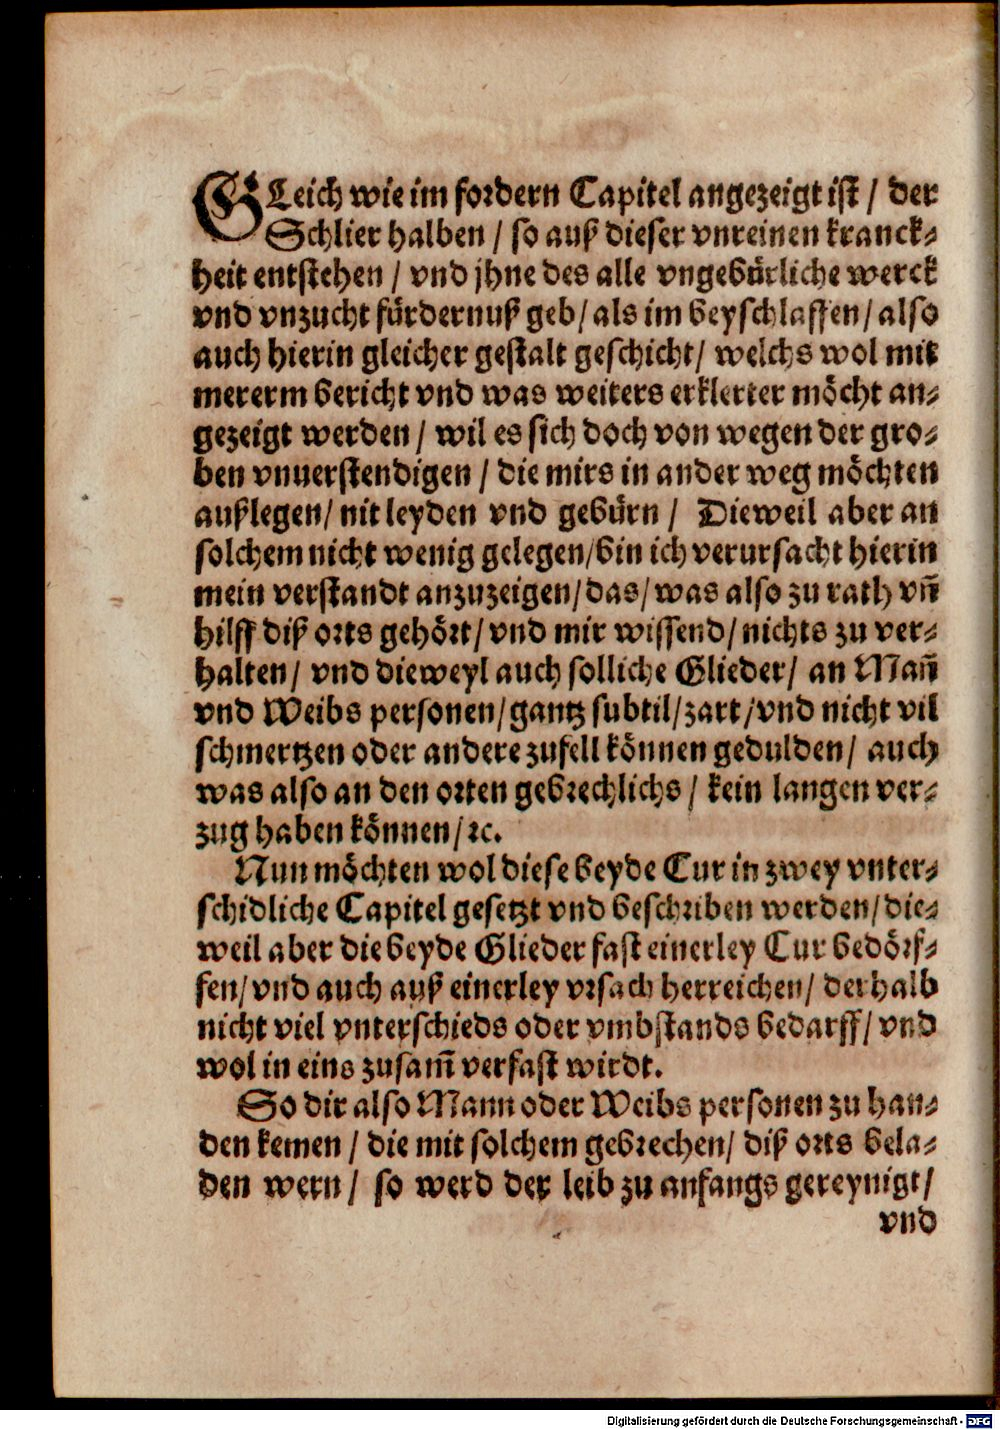 GLeich wie im fordern Capitel angezeigt ist / der
Schlier halben / so auß dieser vnreinen kranck-
heit entstehen / vnd jhne des alle vngebürliche werck
vnd vnzucht fürdernuß geb / als im beyschlaffen / also
auch hierin gleicher gestalt geschicht / welchs wol mit
mererm bericht vnd was weiters erklerter möcht an-
gezeigt werden / wil es sich doch von wegen der gro-
ben vnuerstendigen / die mirs in ander weg möchten
außlegen / nit leyden vnd gebürn / Dieweil aber an
solchem nicht wenig gelegen / bin ich verursacht hierin
mein verstandt anzuzeigen / das / was also zu rath vñ
hilff diß orts gehört / vnd mir wissend / nichts zu ver-
halten / vnd dieweyl auch solliche Glieder / an Mañ
vnd Weibs personen / gantz subtil / zart / vnd nicht vil
schmertzen oder andere zufell können gedulden / auch
was also an den orten gebrechlichs / kein langen ver-
zug haben können / ꝛc.
Nun möchten wol diese beyde Cur in zwey vnter-
schidliche Capitel gesetzt vnd beschriben werden / die-
weil aber die beyde Glieder fast einerley Cur bedörf-
fen / vnd auch auß einerley vrsach herreichen / derhalb
nicht viel vnterschieds oder vmbstands bedarff / vnd
wol in eins zusam̃ verfast wirdt.
So dir also Mann oder Weibs personen zu han-
den kemen / die mit solchem gebrechen / diß orts bela-
den wern / so werd der leib zu anfangs gereynigt /
vnd
Digitalisierung gefördert durch die Deutsche Forschungsgemeinschaft - DFG